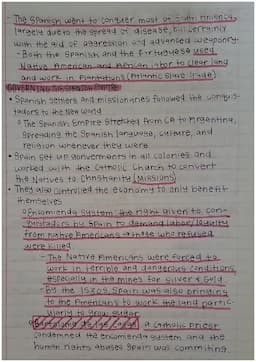 - The Spanish went to conquer most of
largely due to the spread of disease, but certainly
with the aid of aggression and advanced weaponry.
- Both the Spanish and the Portuguese used
Native American and African labor to clear land
and work in plantations (Atlantic Slave Trade)
• Spanish settlers and missionaries followed the conquis-
tadors to the New World
o The Spanish Empire stretched from CA to Argentina,
spreading the Spanish language, culture, and
religion wherever they were
• Spain set up governments in all colonies and
worked with the Catholic Church to convert
the Natives to Christianity (Missions)
• They also controlled the economy to only benefit
themselves
o Encomienda System: the right given to con-
quistadors by Spain to demand labor/loyalty
from Native Americans. Those who refused
were killed.
- The Native Americans were forced to
work in terrible and dangerous conditions,
especially in the mines for silver & gold
- By the 1530s, Spain was also bringing
to the Americans to work the land partic-
ularly to grow sugar
a Catholic priest
condemned the encomienda system and the
human rights abuses Spain was committing.